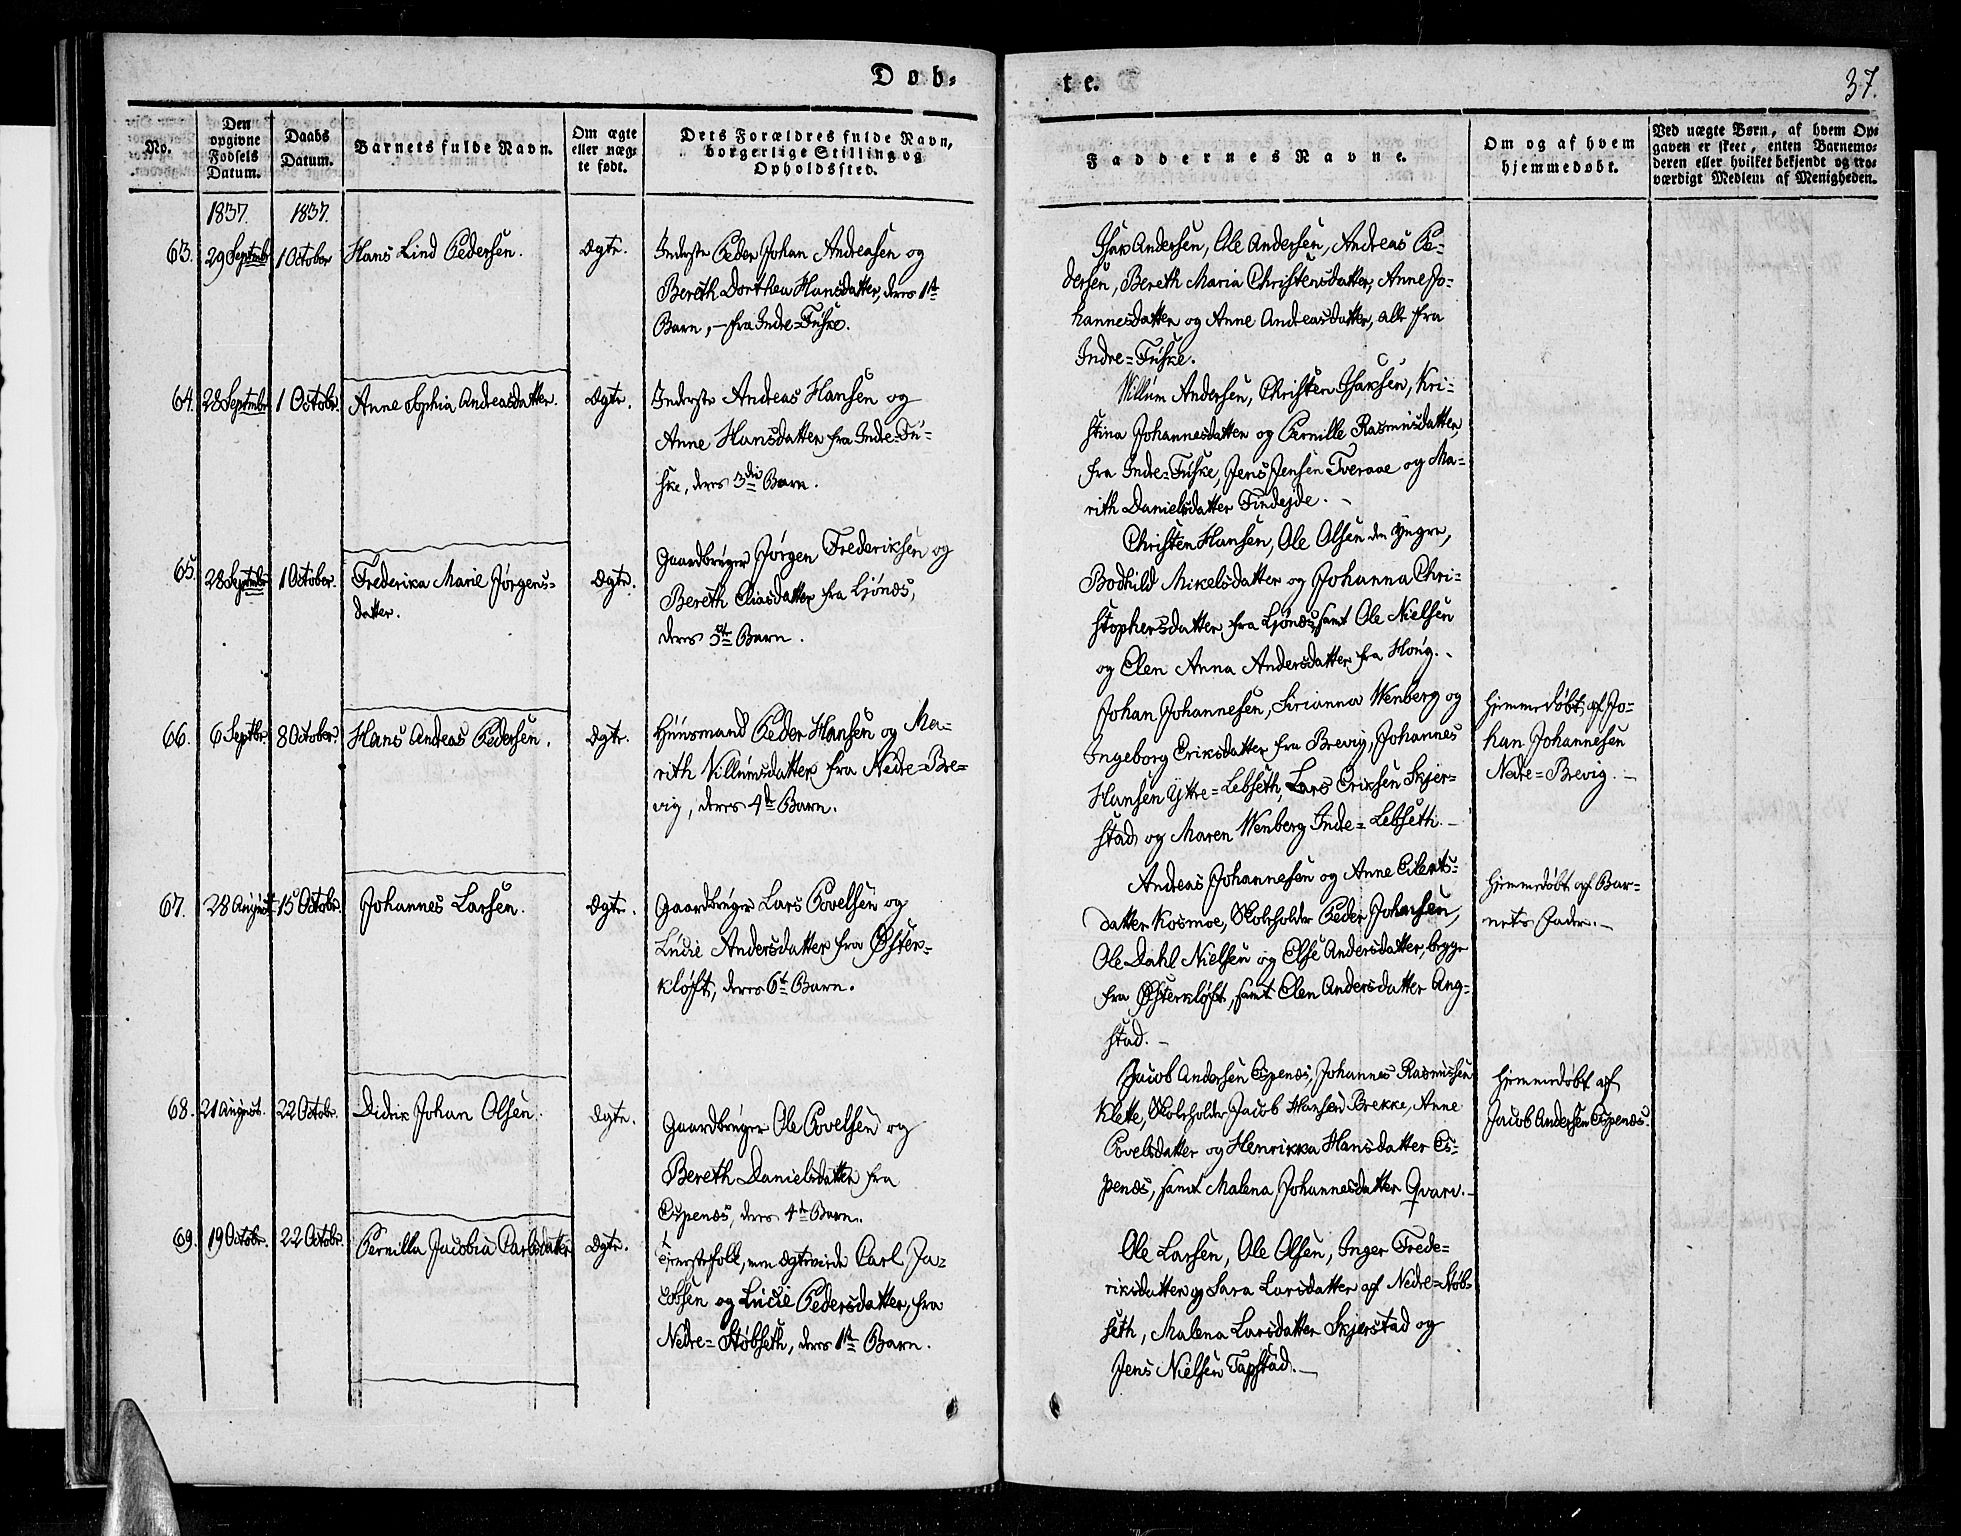 Døb-
te.
37.
No.
Den opgivne Fødsels Datum.
Daabs Datum.
Barnets fulde Navn.
Om ægte eller uægte født.
Dets Forældres fulde Navn, borgerlige Stilling og Opholdssted.
Faddernes Navne.
Om og af hvem hjemmedøbt.
Ved uægte Børn, af hvem Opgaven er skeet, enten Barnemoderen eller hvilket bekjendt og troværdigt Medlem af Menigheden.
1837. 1837.
63. 29 Septembr 1 October Hans Lind Pedersen. Ægte.
Inderste Peder Johan Andreasen og
Bereth Dorthea Hansdatter, deres 1ste
Barn, – fra Indre=Fuske.
Isak Andersen, Ole Andersen, Andreas Pe-
dersen, Bereth Maria Christensdatter, Anne Jo-
hannesdatter og Anne Andreasdatter, alle fra
Indre=Fuske.
64. 28 Septembr 1 Octobr. Anne Sophia Andreasdatter. Ægte.
Inderste Andreas Hansen og
Anne Hansdatter fra Indre=Fu-
ske, deres 3die Barn.
Villum Andersen, Christen Isaksen, Kri-
stina Johannesdatter og Pernille Rasmusdatter,
fra Indre=Fuske, Jens Jensen Tveraae og Ma-
rith Danielsdatter Findejde. –
65. 28 Septembr 1 October. Frederika Marie Jørgens-
datter. Ægte.
Gaardbruger Jørgen Frederiksen og
Bereth Eliasdatter fra Ljønæs,
deres 5te Barn.
Christen Hansen, Ole Olsen den Yngre,
Bodhild Mikelsdatter og Johanna Chri-
stophersdatter fra Ljønæs, samt Ole Nielsen
og Elen Anna Andersdatter fra Høug. –
66. 6 Septbr. 8 October. Hans Andreas Pedersen. Ægte.
Huusmand Peder Hansen og Ma-
rith Villumsdatter fra Nedre=Bre-
vig, deres 4de Barn.
Johan Johannesen, Sirianna Wenberg og
Ingeborg Eriksdatter fra Brevig, Johannes
Hansen Yttre=Lebseth, Lars Eriksen Skjer-
stad og Maren Wenberg Indre=Lebseth. –
Hjemmedøbt af Jo-
han Johannesen
Nedre=Brevig. –
67. 28 August 15 Octobr. Johannes Larsen. Ægte.
Gaardbruger Lars Povelsen og
Lucie Andersdatter fra Øster-
kløft, deres 6te Barn.
Andreas Johannesen og Anne Eilerts-
datter Kosmoe, Skoleholder Peder Johansen,
Ole Dahl Nielsen og Else Andersdatter, begge
fra Østerkløft, samt Elen Andersdatter Ang-
stad. –
Hjemmedøbt af Bar-
nets Fader. –
68. 21 August. 22 Octobr. Didrik Johan Olsen. Ægte.
Gaardbruger Ole Povelsen og
Bereth Danielsdatter fra
Espenæs, deres 4de Barn.
Jacob Andersen Espenæs, Johannes Rasmussen
Klette, Skoleholder Jacob Hansen Brekke, Anne
Povelsdatter og Henrikka Hansdatter Es-
penæs, samt Malena Johannesdatter Qvarv. –
Hjemmedøbt af
Jacob Andersen Espenæs.
69. 19 Octobr. 22 Octobr. Pernilla Jacobia Carlsdatter Ægte.
Tjenestefolk, men Ægteviede Carl Ja-
cobsen og Lucie Pedersdatter, fra
Nedre=Støbseth, deres 1ste Barn.
Ole Larsen, Ole Olsen, Inger Frede-
riksdatter og Sara Larsdatter af Nedre=Støb-
seth, Malena Larsdatter Skjerstad og
Jens Nielsen Tapstad. –